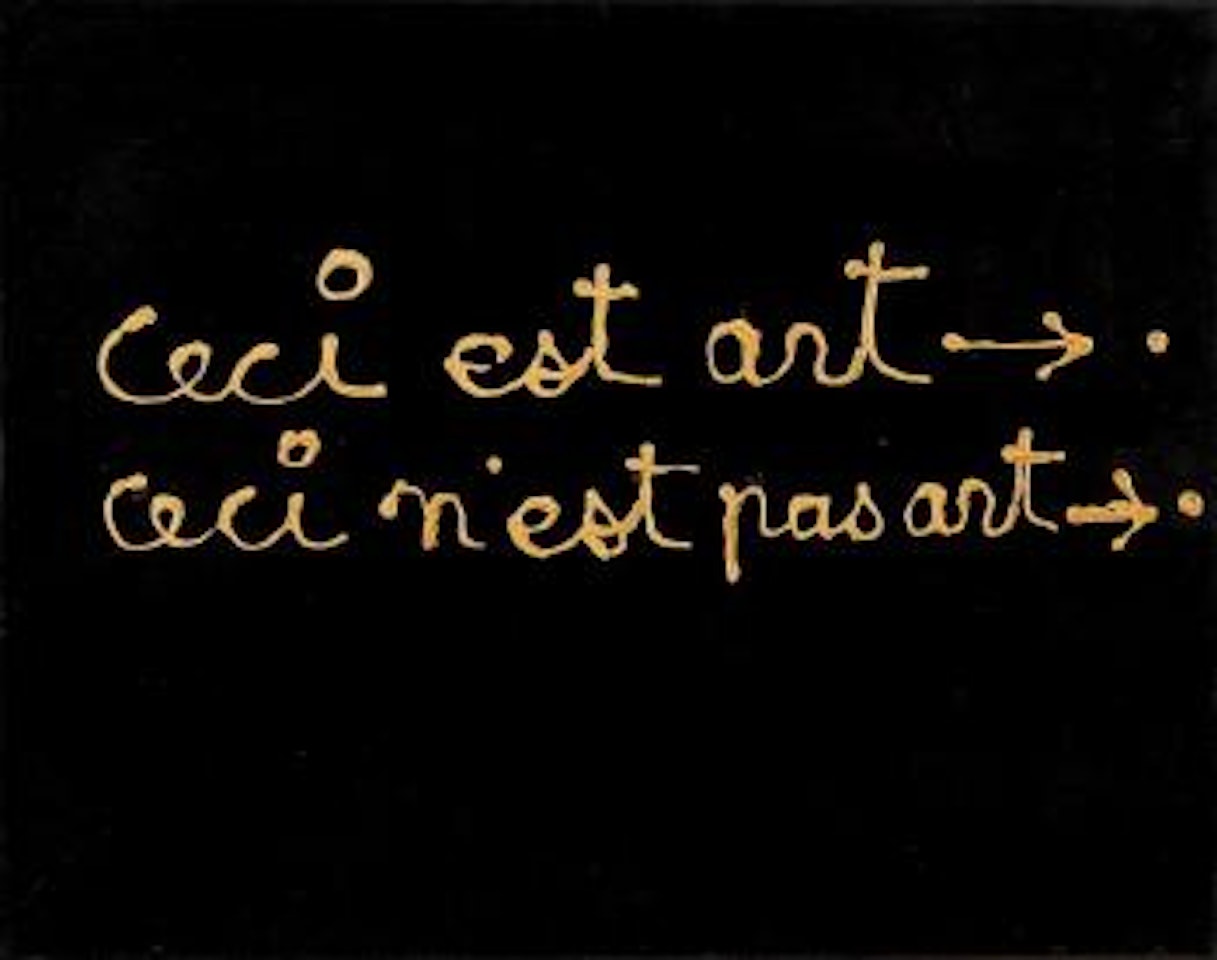 ceci est art → .
ceci n'est pas art → .